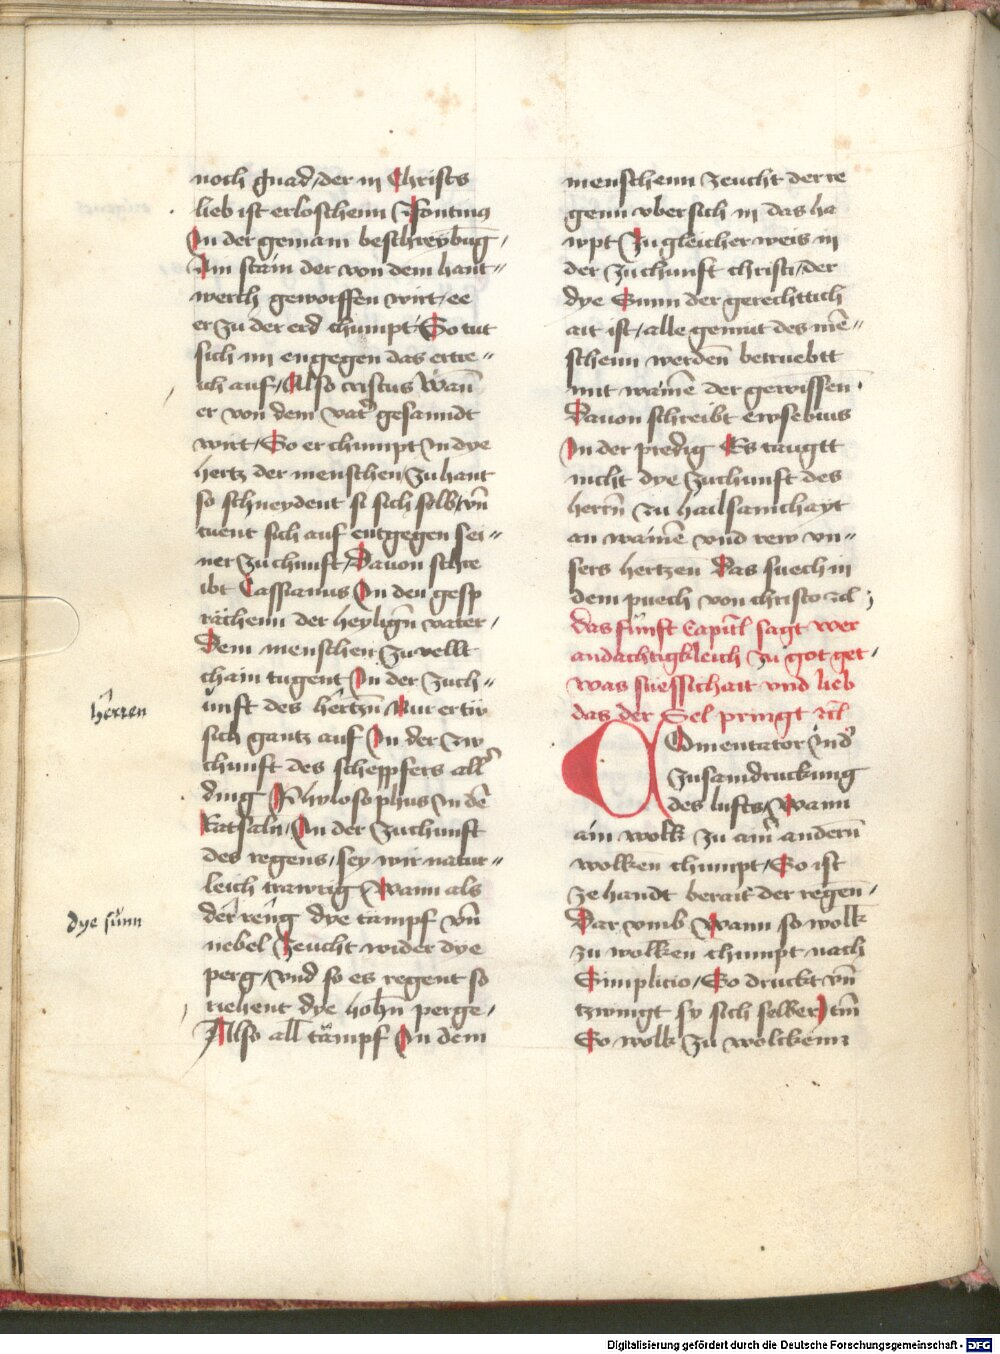 noch gnad / der in Christs
lieb ist erloschenn Fontinus
In der gemain beschreybũg /
Ain stain der von dem hant⸗
werch geworffen wirt / ee
er zu der erd chumpt So tut
sich im engegen das ertre⸗
ich auf / Also cristus Wañ
er von dem vat̾ gesanndt
wirt / So er chumpt In dye
hertz der menschen Zu hant
so schneydent si sich selb / vñ
tuent sich auf entgegen sei⸗
ner zuchunft / Dauon schre
ibt Cassianus In den gesp
rächenn der heyligñ vater /
Dem menschen zu vellt
chain tugent In der zuch⸗
unft des hertzñ Nur er tŵ
herren
sich gantz auf In der zw
chunft des scheppfers all̾
ding Phylosophus In dẽ
Ratsaln / In der zuchunft
des regens / sey wir natur⸗
leich trawrig Wann als
der reng dye tämpf vñ
dye sunn
nebel Zeucht wider dye
perg / vnd so es regent so
riehent dye hohñ perge /
Also all tämpf In dem
menschenn zeucht der re
genn vbersich in das ha
wpt Zu gleicher weis in
der zuchunft christi / der
dye Sunn der gerechttich
ait ist / alle gemut des mẽ⸗
schenn werdeñ betruebtt
mit wainẽ der gewisseñ
Dauon schreibt ewsebius
In der predig Es taugtt
nicht dye zuchunft des
herrñ zu hailsamchayt
an wainẽ vnd rew vn⸗
sers hertzen Das suech in
dem puech von christo
das funft Capitl sagt wer
andächtigkleich zu got get
was suessichait vnd lieb
das der Sel pringt
Comentator
zusamdruckung
des lufts / Wann
ain wolk zu aim anderñ
wolken chumpt / So ist
ze handt berait der regeñ /
Dar vmb Wann so wolk
zu wolken chumpt nach
Simplicio / So druckt vñ
tzwingt sy sich selber
So wolk zu wolckenn
Digitalisierung gefördert durch die Deutsche Forschungsgemeinschaft - DFG